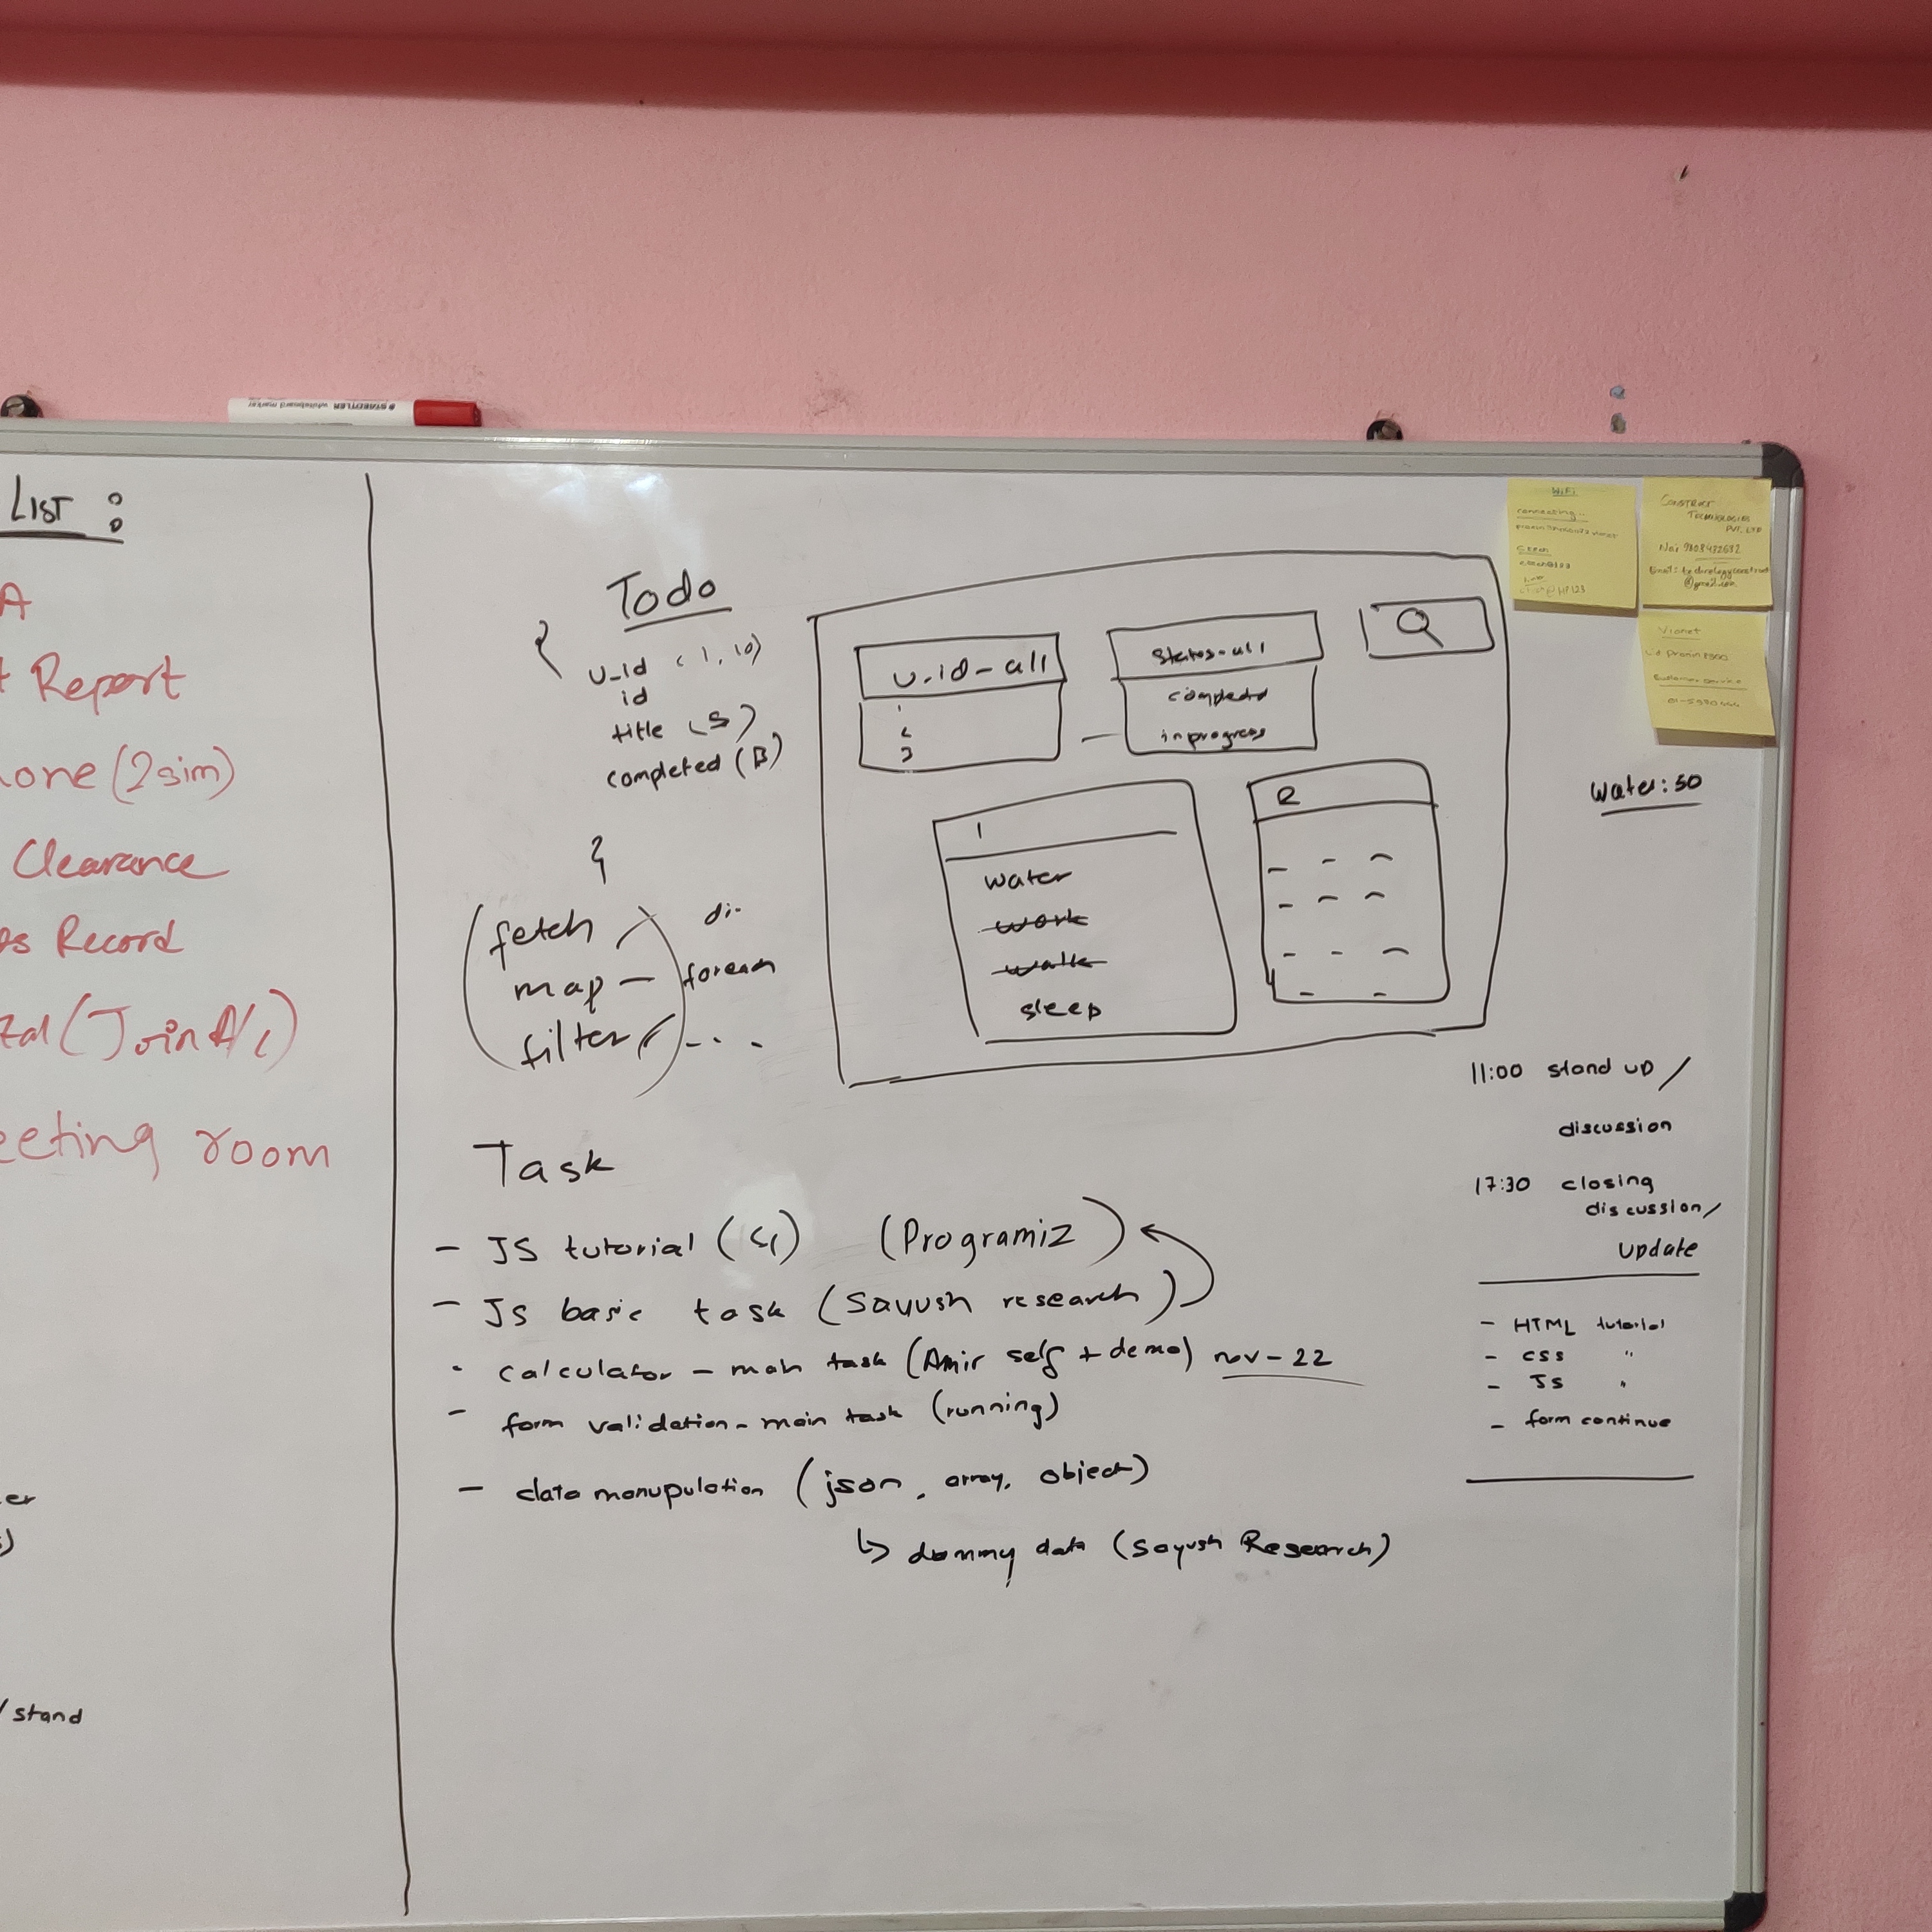 STAEDTLER whiteboard marker
LIST :
A
Report
one (2 sim)
Clearance
Record
(Join A/c)
eeting room
er
/ stand
Todo
{
u_id (1, 10)
id
title (S)
completed (B)
}
fetch
map - foreach
filter - . .
u_id - all
1
2
3
completed
inprogress
1
water
work
walk
sleep
2
Task
- JS tutorial (Programiz)
- JS basic task (Sayush research)
- calculator - main task (Amir self + demo) nov - 22
- form validation - main task (running)
- data manupulation (json, array, object)
↳ dummy data (Sayush Research)
WiFi
connecting..
CONSTRUCT
TECHNOLOGIES
PVT. LTD
Vianet
Customer service
Water: 50
11:00 stand up /
discussion
17:30 closing
discussion /
update
- HTML tutorial
- CSS "
- JS "
- form continue